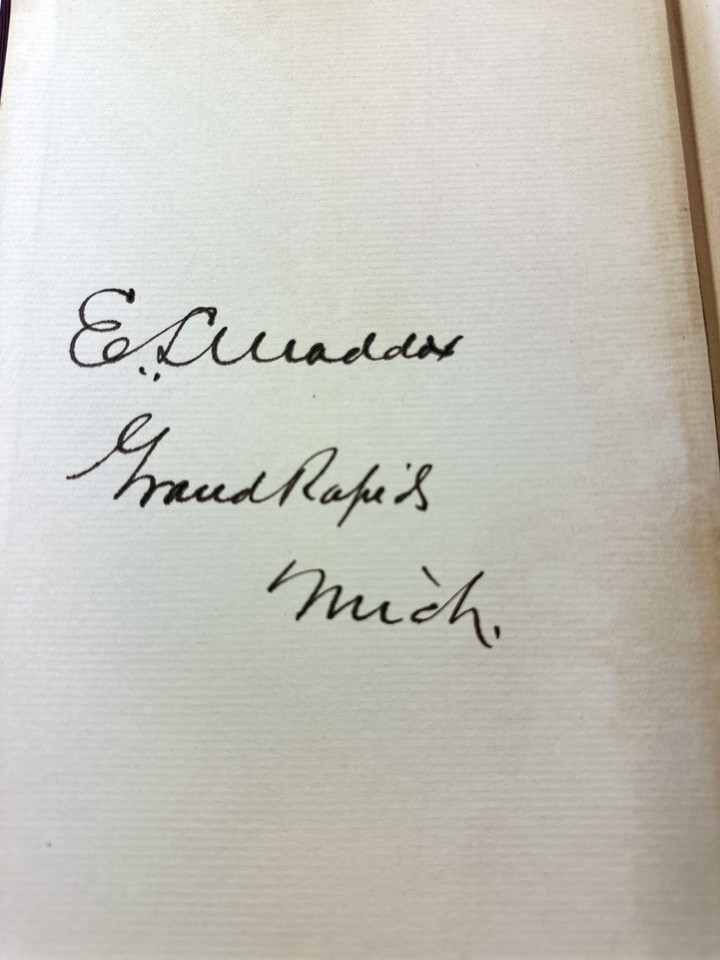 E. L. Maddox
Grand Rapids
Mich.